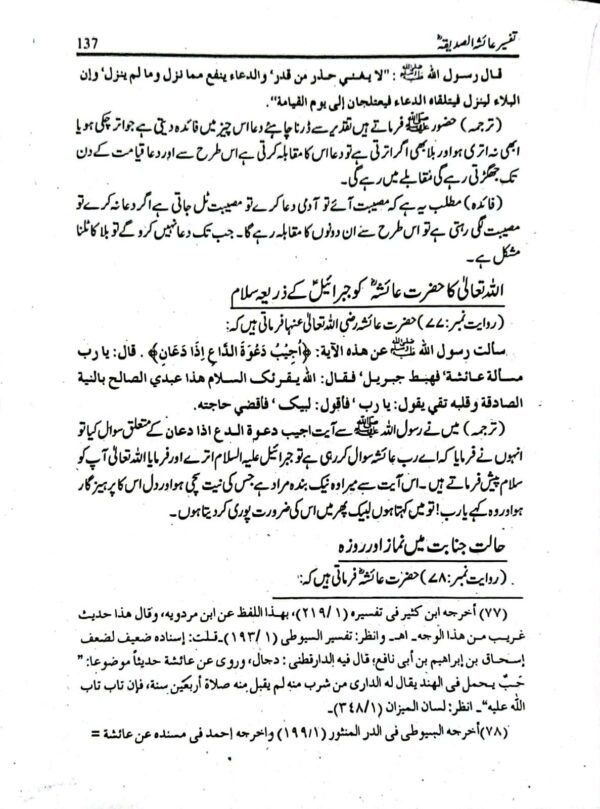 تفسیر عائشہ الصدیقہؓ
137
قال رسول الله ﷺ : "لا يغني حذر من قدر، والدعاء ينفع مما نزل وما لم ينزل، وإن
البلاء لينزل فيتلقاه الدعاء فيعتلجان إلى يوم القيامة".
(ترجمہ) حضور ﷺ فرماتے ہیں تقدیر سے ڈرنا چاہئے دعا اس چیز میں فائدہ دیتی ہے جو اتر چکی ہو یا
ابھی نہ اتری ہو اور بلا بھی اگر اترتی ہے تو دعا اس کا مقابلہ کرتی ہے اس طرح سے اور دعا قیامت کے دن
تک جھگڑتی رہے گی مقابلے میں رہے گی۔
(فائدہ) مطلب یہ ہے کہ مصیبت آئے تو آدمی دعا کرے تو مصیبت ٹل جاتی ہے اگر دعا نہ کرے تو
مصیبت لگی رہتی ہے تو اس طرح سے ان دونوں کا مقابلہ رہے گا۔ جب تک دعا نہیں کرو گے تو بلا کا ٹلنا
مشکل ہے۔
اللہ تعالیٰ کا حضرت عائشہؓ کو جبرائیلؑ کے ذریعہ سلام
(روایت نمبر: ۷۷) حضرت عائشہ رضی اللہ تعالیٰ عنہا فرماتی ہیں کہ:
سألت رسول الله ﷺ عن هذه الآية: ﴿أُجِيْبُ دَعْوَةَ الدَّاعِ إِذَا دَعَانِ﴾. قال: يا رب
مسألة عائشة، فهبط جبريل، فقال: الله يقرئك السلام هذا عبدي الصالح بالنية
الصادقة وقلبه تقي يقول: يا رب، فأقول: لبيك، فأقضي حاجته.
(ترجمہ) میں نے رسول اللہ ﷺ سے آیت اجیب دعوة الدع اذا دعان کے متعلق سوال کیا تو
انہوں نے فرمایا کہ اے رب عائشہ سوال کر رہی ہے تو جبرائیل علیہ السلام اترے اور فرمایا اللہ تعالیٰ آپ کو
سلام پیش فرماتے ہیں۔ اس آیت سے میرا وہ نیک بندہ مراد ہے جس کی نیت سچی ہو اور دل اس کا پرہیز گار
ہو اور وہ کہے یا رب! تو میں کہتا ہوں لبیک پھر میں اس کی ضرورت پوری کر دیتا ہوں۔
حالت جنابت میں نماز اور روزہ
(روایت نمبر: ۷۸) حضرت عائشہؓ فرماتی ہیں کہ:
(۷۷) أخرجه ابن كثير فى تفسيره (۲۱۹/۱)، بهذا اللفظ عن ابن مردويه، وقال هذا حديث
غريب من هذا الوجه۔ اهـ۔ وانظر: تفسير السيوطى (۱۹۳/۱)۔ قلت: إسناده ضعيف لضعف
إسحاق بن إبراهيم بن أبى نافع، قال فيه الدارقطنى: دجال، وروى عن عائشة حديثاً موضوعا: "
حَبٌ يحمل فى الهند يقال له الدارى من شرب منه لم يقبل منه صلاة أربعين سنة، فإن تاب تاب
الله عليه"۔ انظر: لسان الميزان (۳۴۸/۱)۔
(۷۸) أخرجه السيوطى فى الدر المنثور (۱۹۹/۱) واخرجه إحمد فى مسنده عن عائشة =